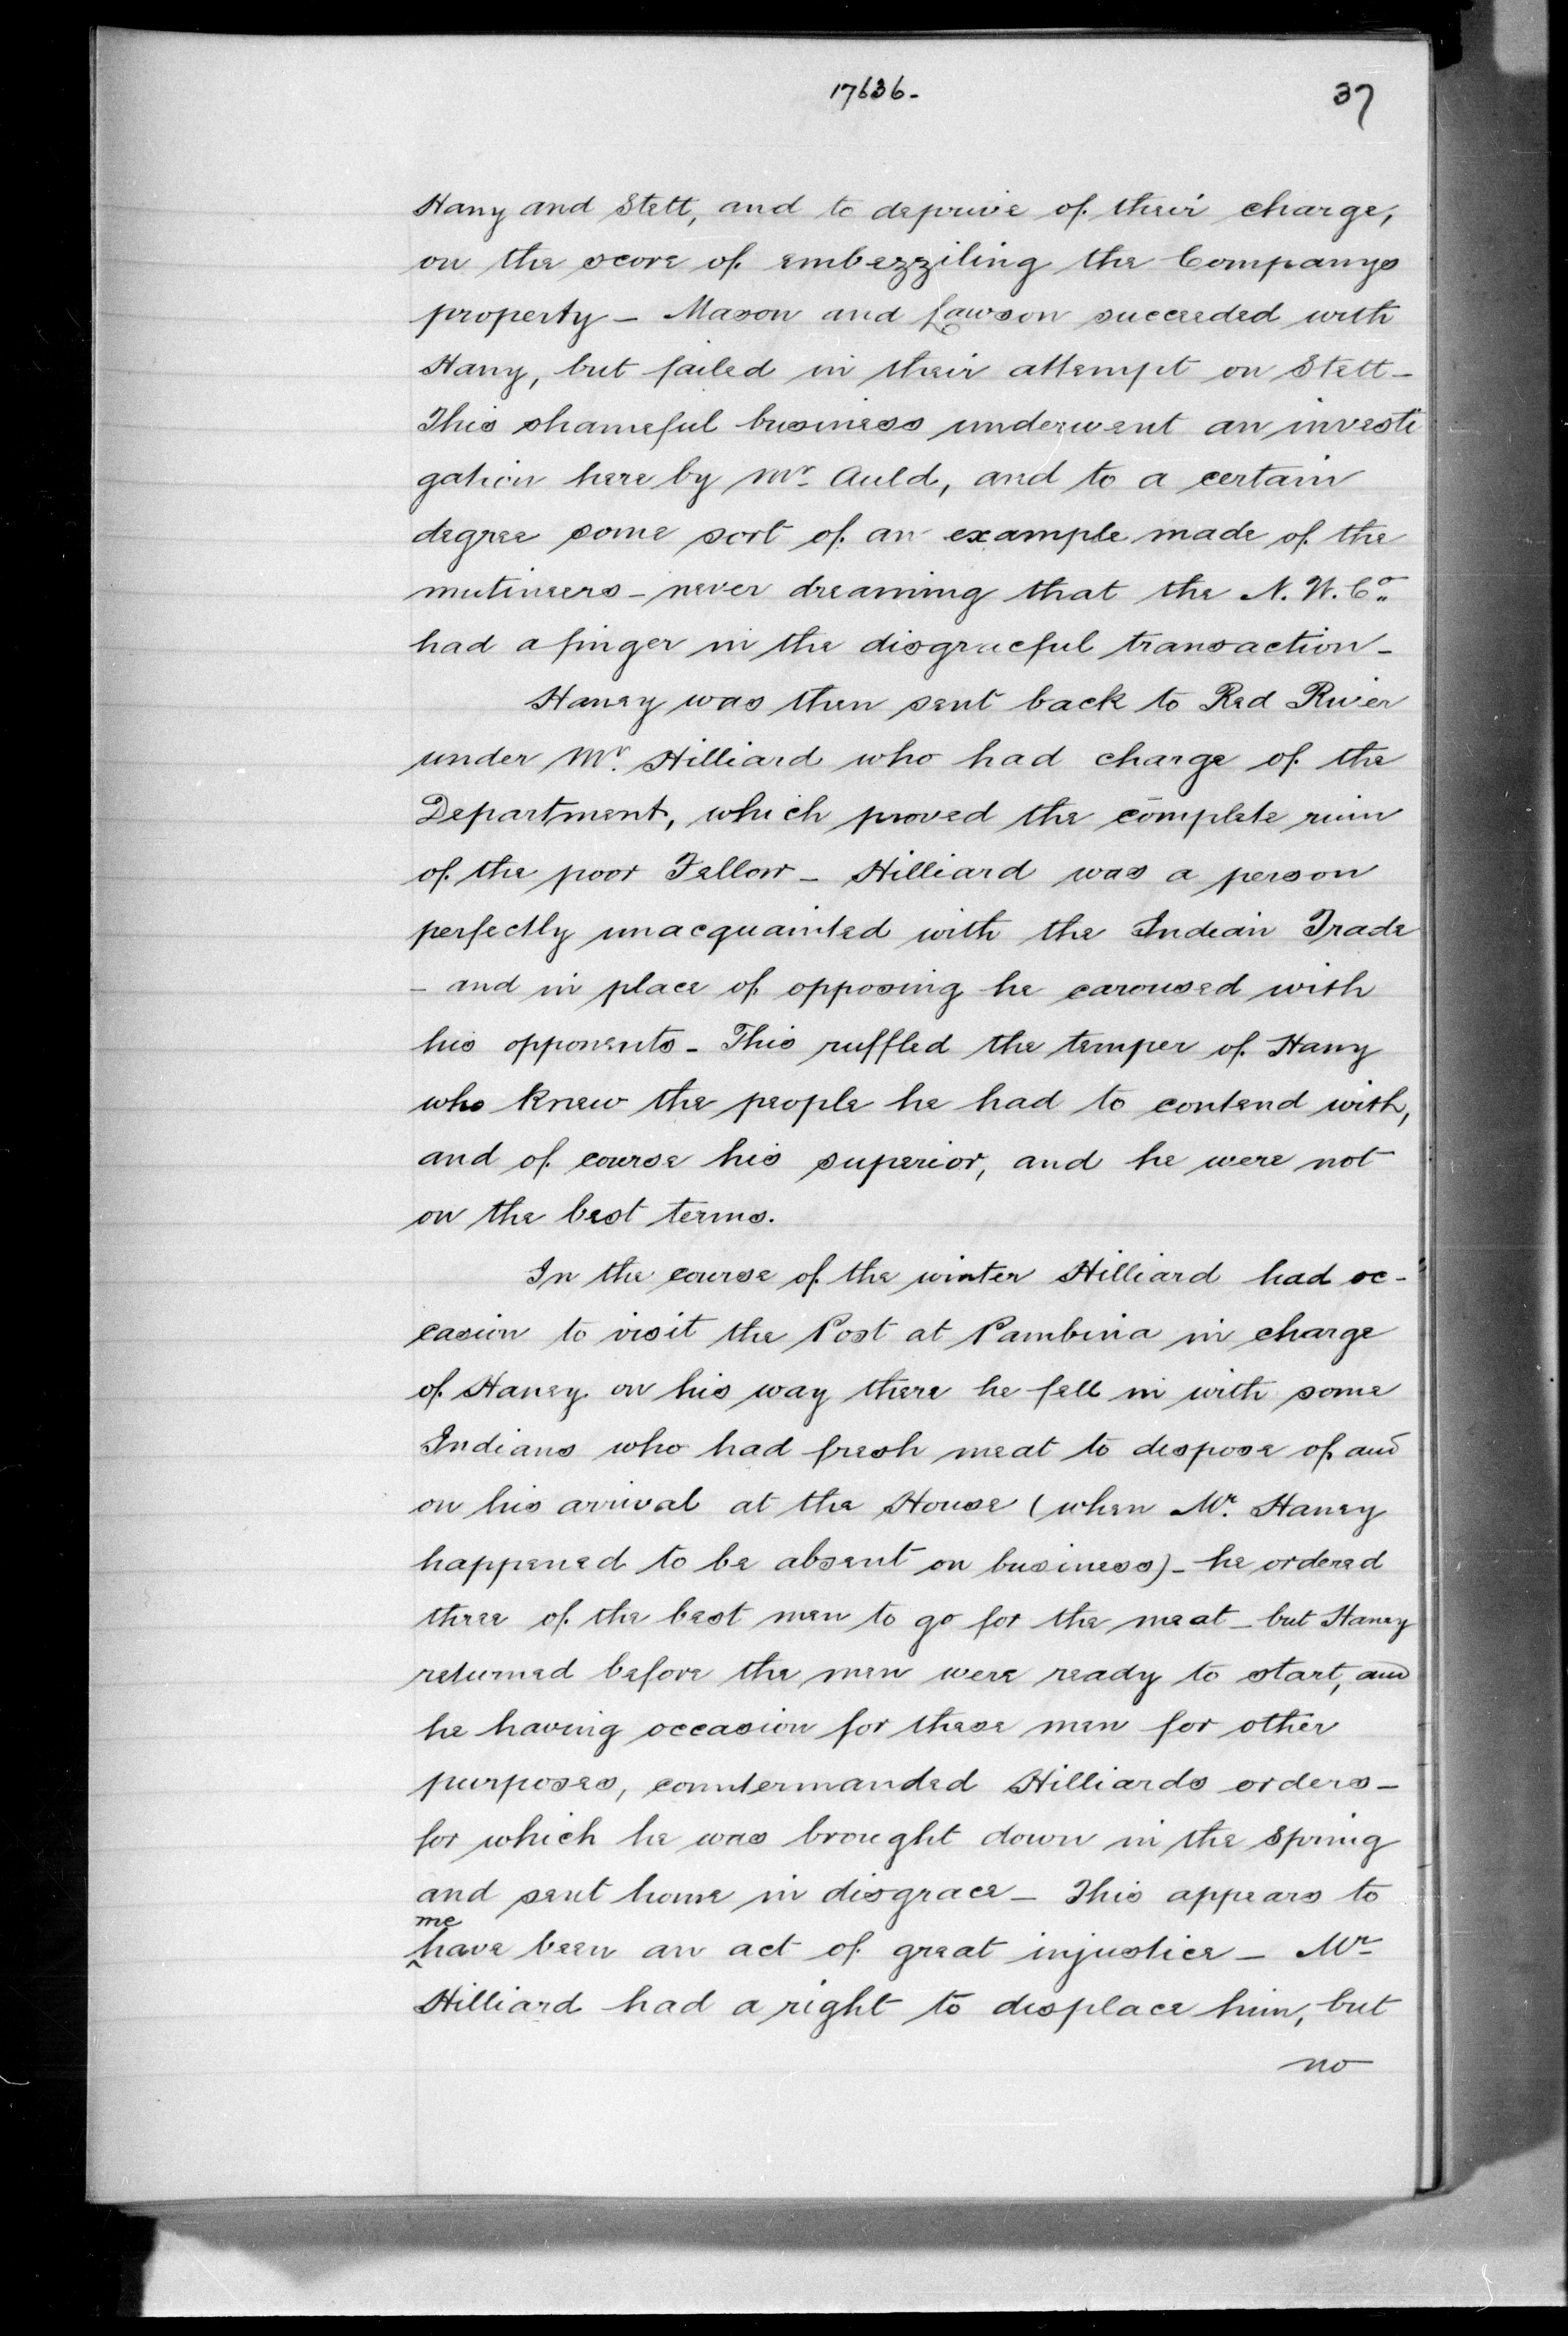 17636.
37
Hany and Stett, and to deprive of their charge,
on the score of embezziling the Companys
property – Mason and Lawson succeeded with
Hany, but failed in their attempt on Stett –
This shameful business underwent an investi
gation here by Mr. Auld, and to a certain
degree some sort of an example made of the
mutineers – never dreaming that the N. W. Co.
had a finger in the disgraceful transaction –
Haney was then sent back to Red River
under Mr. Hilliard who had charge of the
Department, which proved the complete ruin
of the poor Fellow – Hilliard was a person
perfectly unacquainted with the Indian Trade
– and in place of opposing he caroused with
his opponents – This ruffled the temper of Hany
who knew the people he had to contend with,
and of course his superior, and he were not
on the best terms.
In the course of the winter Hilliard had oc-
casion to visit the Post at Pambina in charge
of Haney. on his way there he fell in with some
Indians who had fresh meat to dispose of and
on his arrival at the House (when Mr. Haney
happened to be absent on business) – he ordered
three of the best men to go for the meat – but Haney
returned before the men were ready to start, and
he having occasion for these men for other
purposes, countermanded Hilliards orders –
for which he was brought down in the Spring
and sent home in disgrace – This appears to
me
^have been an act of great injustice – Mr.
Hilliard had a right to displace him, but
no